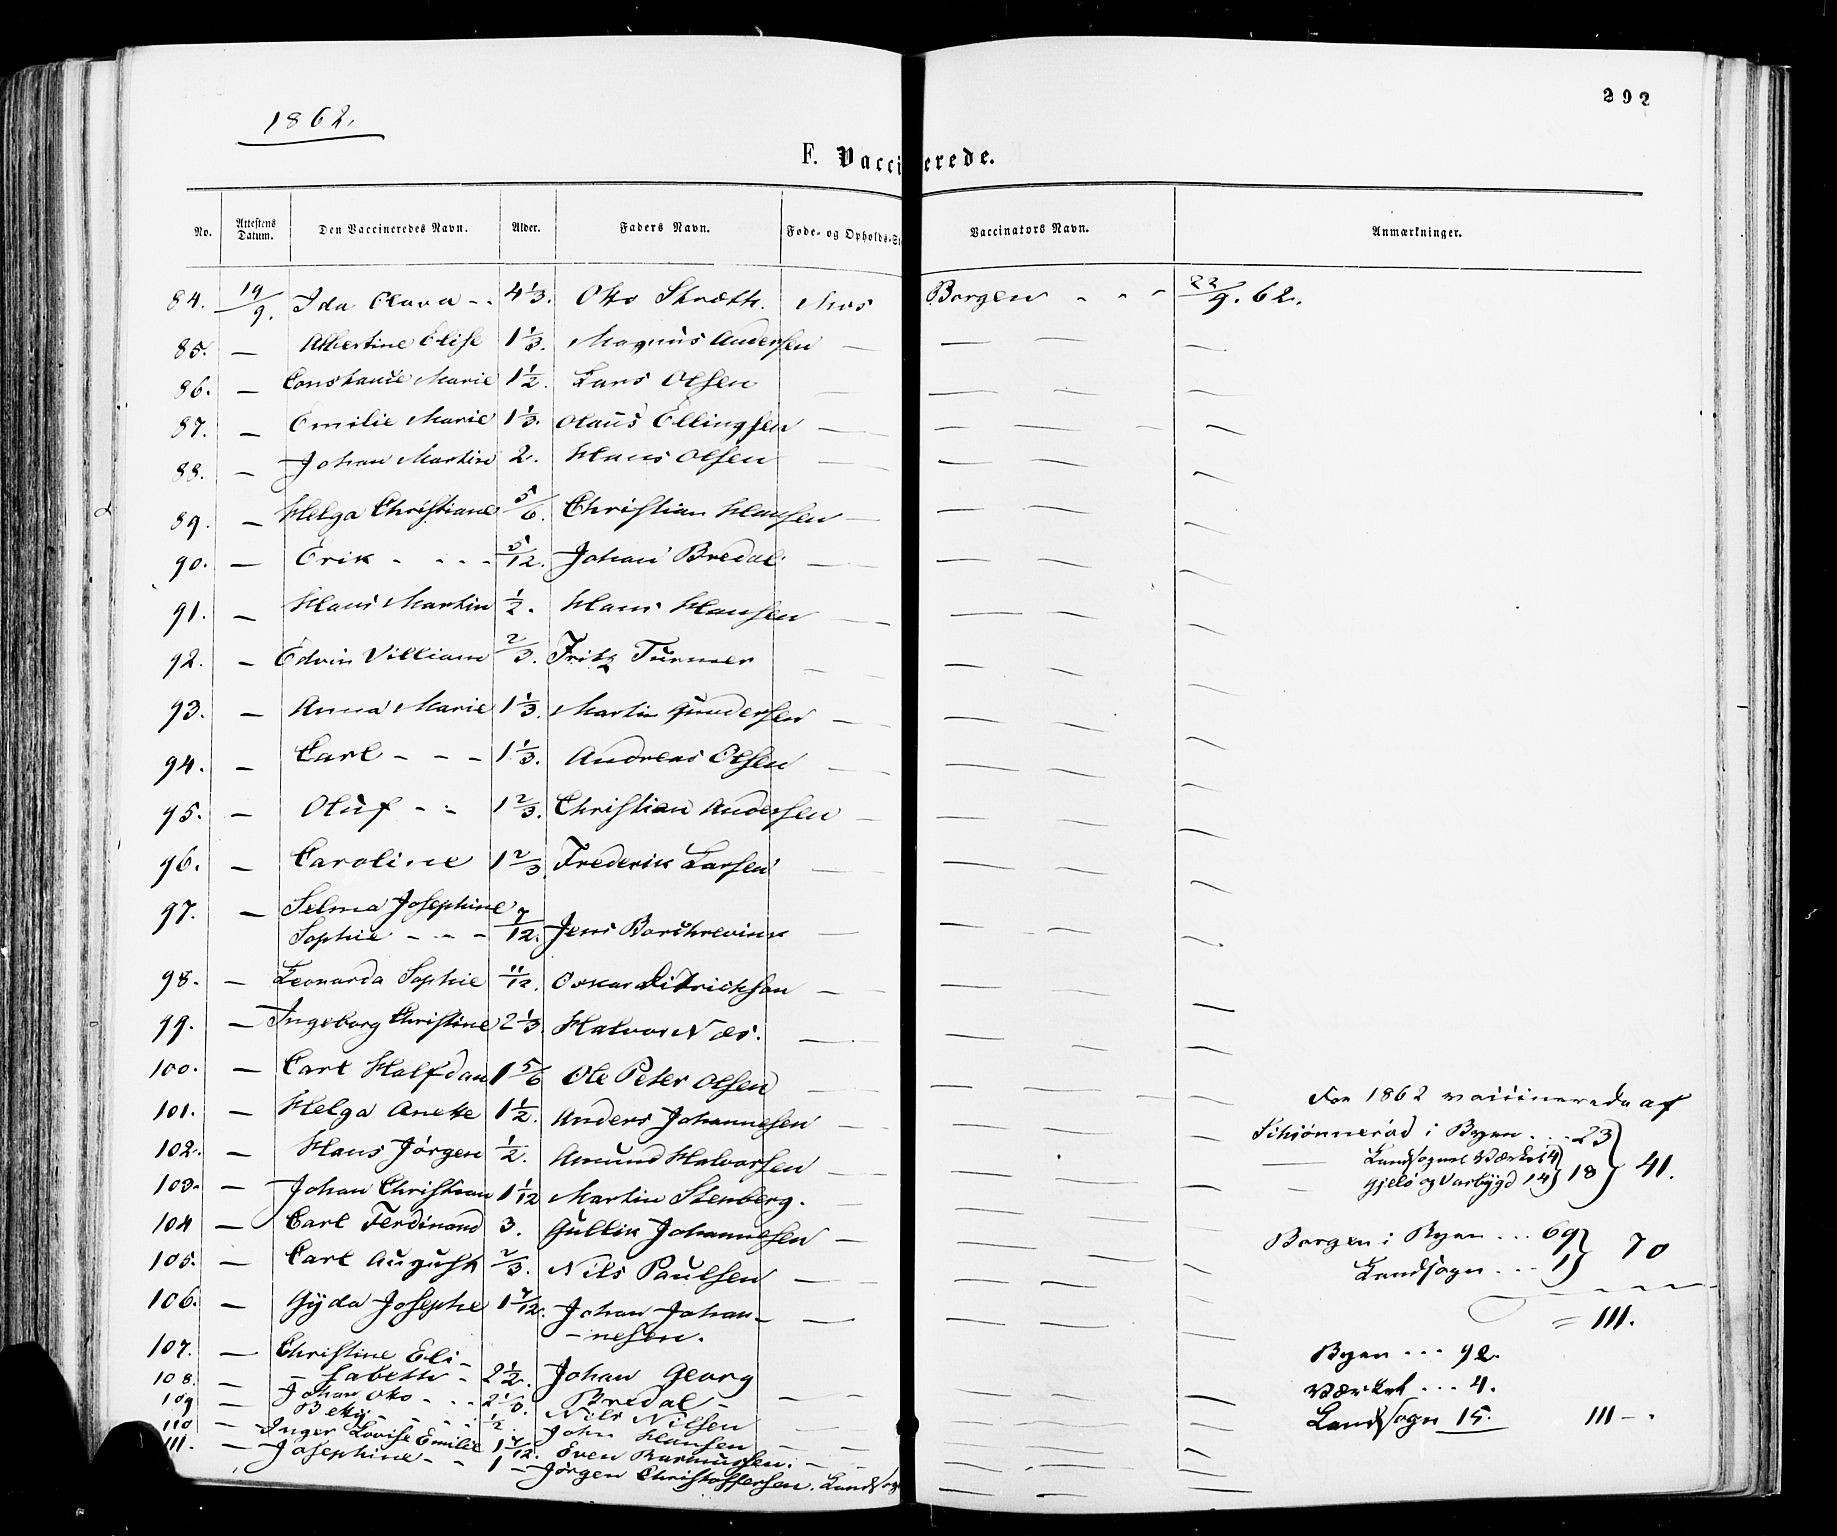 292
1862.
F. Vacci erede.
No. Attestens Datum. Den Vaccineredes Navn. Alder. Faders Navn. Føde- og Opholds-St Vaccinators Navn. Anmærkninger.
84. 19/9. Ida Clara - - 4 1/3. Otto Mos Borgen - - - 22/9. 62.
85. — Albertine Elise 1 1/3. Magnus Andersen — — — —
86. — Constance Marie 1 1/2. Lars Olsen — — — —
87. — Emilie Marie 1 1/3. Olaus Ellingsen — — — —
88. — Johan Martin 2. Hans Olsen — — — —
89. — Helga Christiane 5/6. Christian Hansen — — — —
90. — Erik - - - - 5/12. Johan Bredal. — — — —
91. — Hans Martin 1/2. Hans Hansen — — — —
92. — Edvin Villiam 2/3. Fritz Turner — — — —
93. — Anna Marie 1 1/3. Martin Gundersen — — — —
94. — Carl - - - 1 1/3. Andreas Olsen — — — —
95. — Oluf - - 1 2/3. Christian Andersen — — — —
96. — Caroline 1 2/3. Frederik Larsen — — — —
97. — Selma Josephine
Sophie - - - 7/12. Jens Borchrevink — — — —
98. — Leonarda Sophie 11/12. Oskar Ditrickson — — — —
99. — Ingeborg Christine 2 1/3. Halvor Næs. — — — —
100. — Carl Halfdan 1 5/6 Ole Peter Olsen — — — —
101. — Helga Anette 1 1/2. Anders Johannesen — — — —
102. — Hans Jørgen 1/2. Amund Halvorsen — — — —
103. — Johan Christian 1 1/12 Martin Stenberg. — — — —
104 — Carl Ferdinand 3. Gullik Johannesen — — — —
105. — Carl August 2/3. Nils Paulsen — — — —
106. — Gyda Josephe 1 7/12. Johan Johan-
-nesen. — — — —
107. — Christine Eli-
-sabeth - 2 1/2. Johan Georg
Bredal -
108. — Johan Otto - - 2 Nils Nilsen
109 — Betzy - - - 1/2. John Hansen
110 — Inger Lovise Emilie 1 7/12. Even Rasmussen.
111. — Josephine - - 1 - Jørgen Christoffersen. Landsog
For 1862 vaccinerede af
Schiønnerød i Byen . . . 23
Landsognet Værket 4
Gjelø og Varbygd 14 } 18 } 41.
Borgen i Byen . . . 69
Landsogn . . . 1 } 70
= 111.
Byen . . . 92.
Værket . . . 4.
Landsogn 15. 111 - .